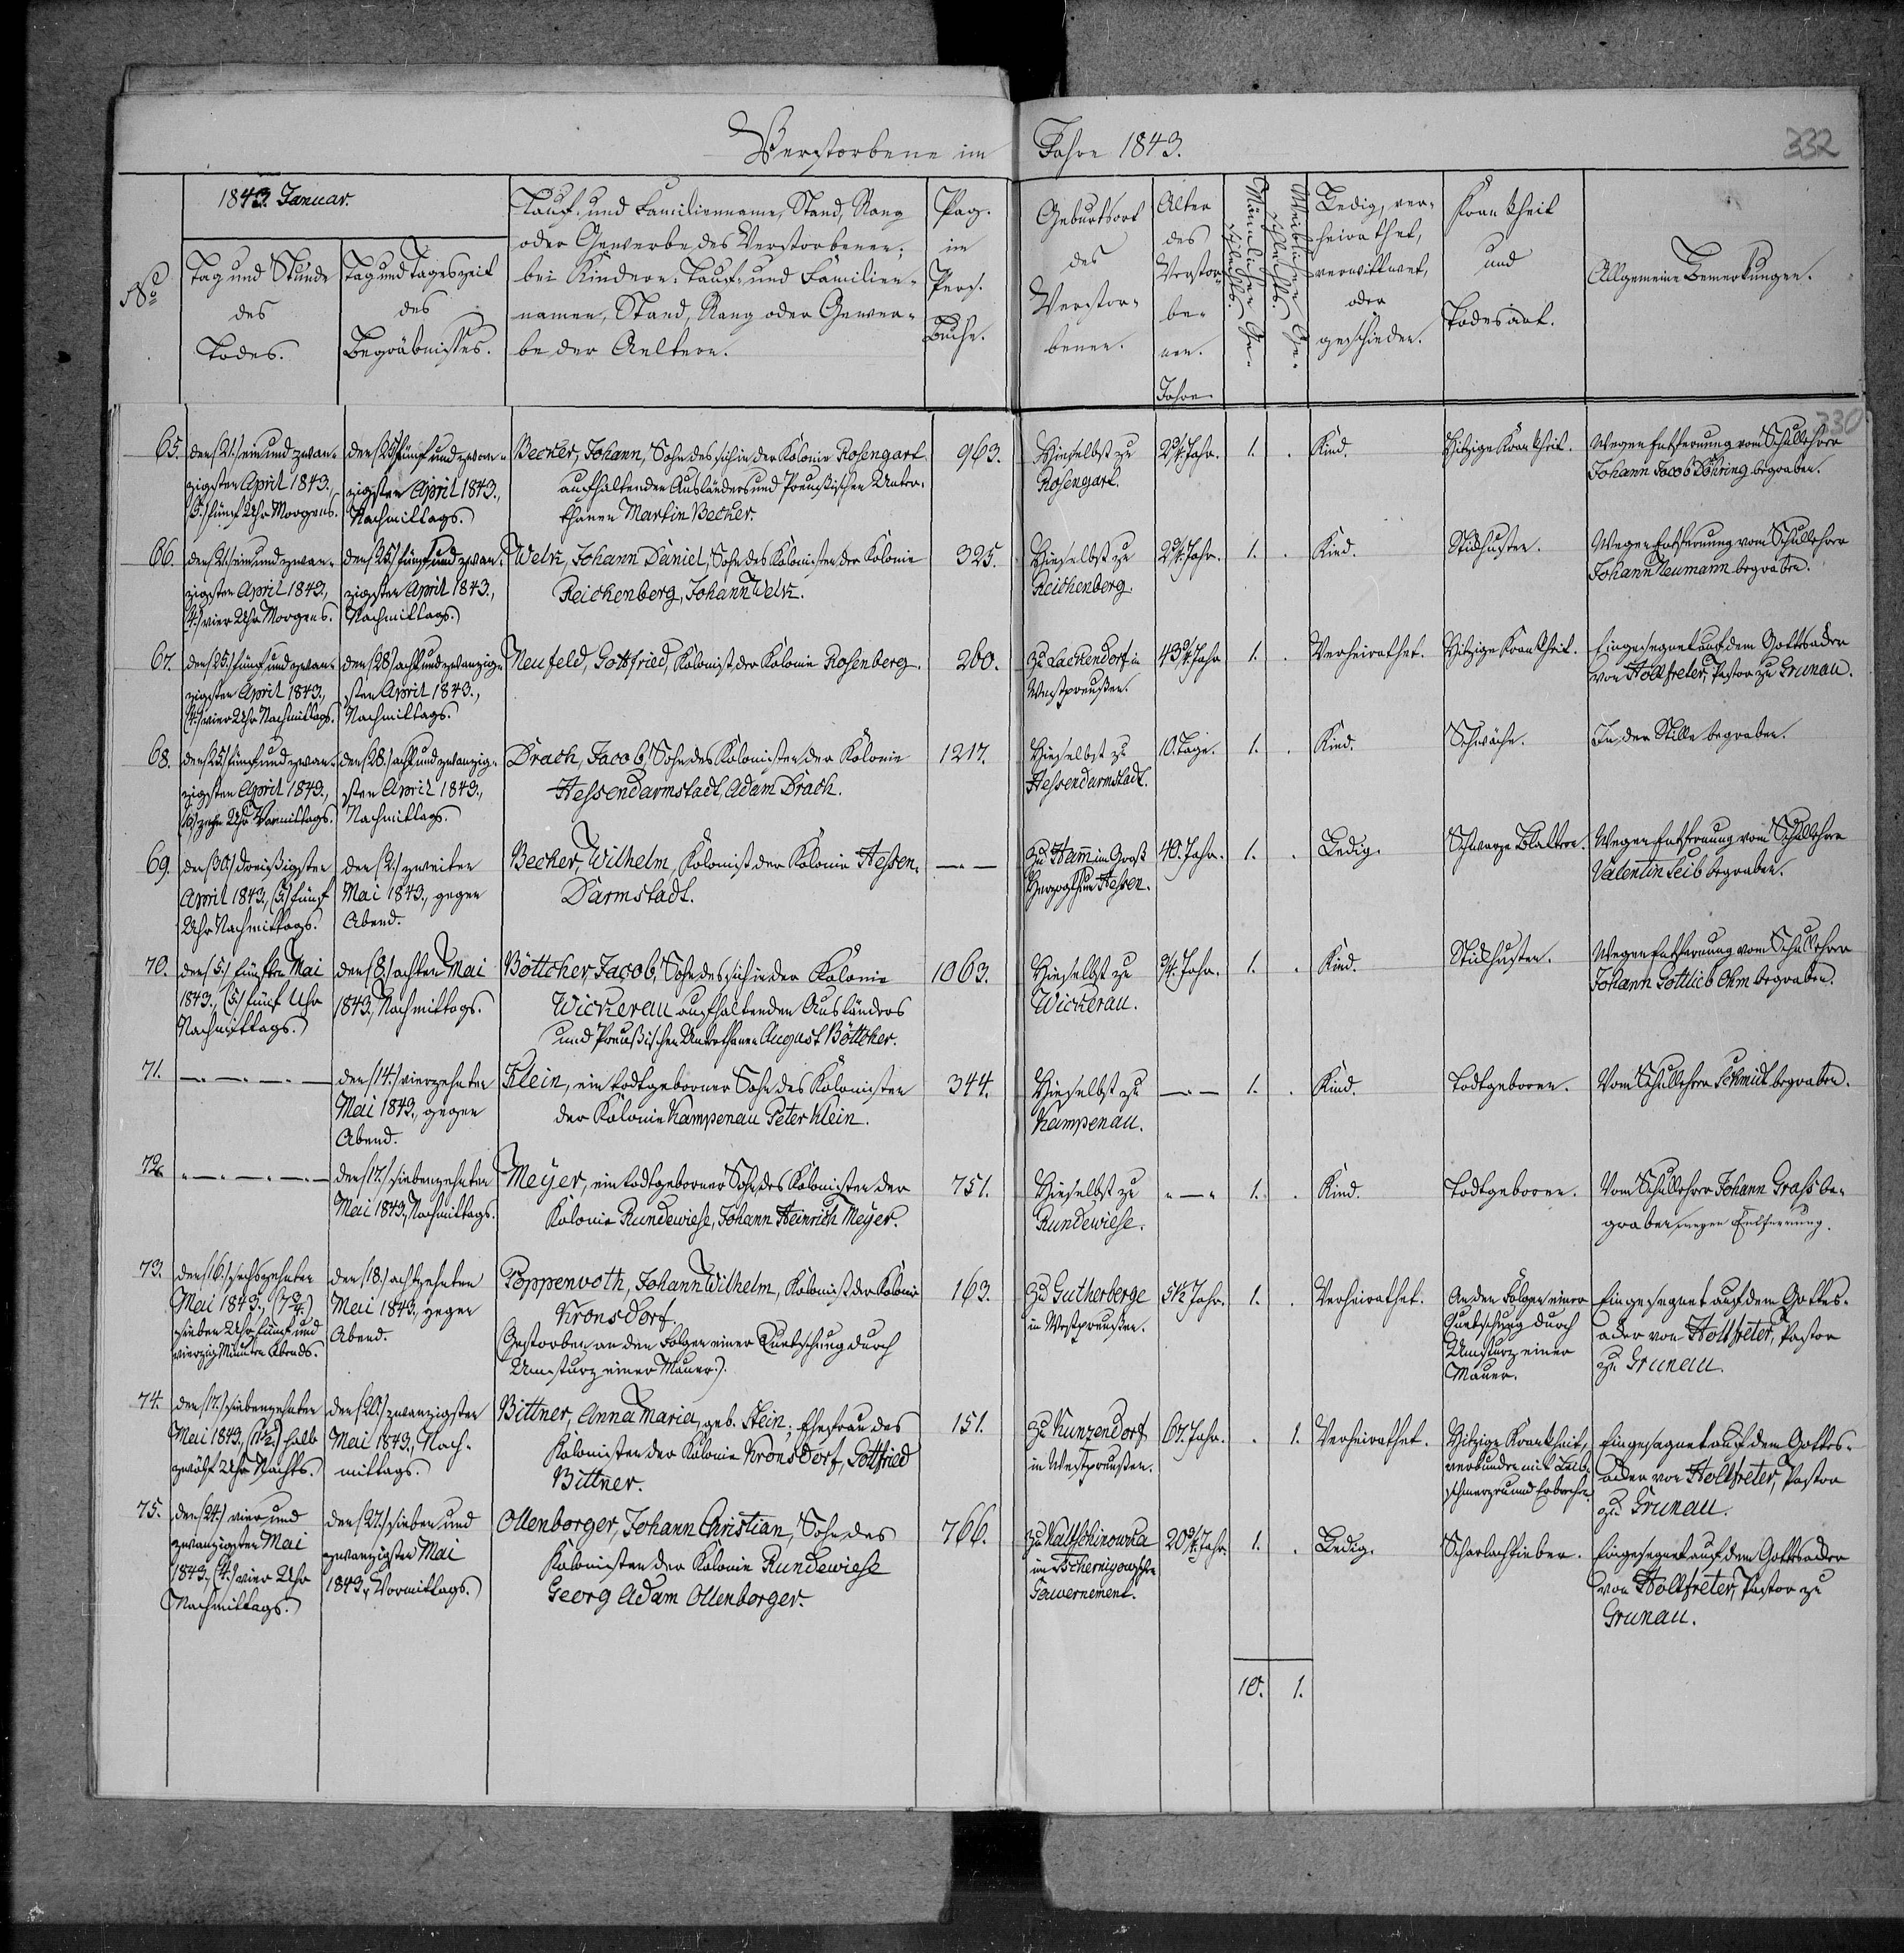 Verstorbene im Jahre 1843.
332
1843. Januar.
No
Tag und Stunde
des
Todes.
Tag und Tageszeit
des
Begräbnisses.
Tauf- und Familienname, Stand, Rang
oder Gewerbe des Verstorbenen;
bei Kindern: Tauf- und Familien-
namen, Stand, Rang oder Gewer-
be der Aeltern.
Pag.
im
Pers.
Buche.
Geburtsort
des
Verstor-
benen.
Alter
des
Verstor-
be-
nen.
Jahre
Männlichen Ge-
schlechts.
Weiblichen Ge-
schlechts.
Ledig, ver-
heirathet,
verwittwet,
oder
geschieden.
Krankheit
und
Todesart.
Allgemeine Bemerkungen.
330
65.
den (21.) ein und zwan-
zigsten April 1843.,
(5.) fünf Uhr Morgens.
den (25.) fünf und zwan-
zigsten April 1843.,
Nachmittags.
Becker, Johann, Sohn des sich in der Kolonie Rosengart
aufhaltenden Ausländers und Preußischen Unter-
thanen Martin Becker.
963.
Hieselbst zu
Rosengart.
Jahr.
1.
Kind.
Hitzige Krankheit.
Wegen Entfernung vom Schullehrer
Johann Jacob Döhring begraben.
66.
den (21.) ein und zwan-
zigsten April 1843.,
(4.) vier Uhr Morgens.
den (25.) fünf und zwan-
zigsten April 1843.,
Nachmittags.
Welk, Johann Daniel, Sohn des Kolonisten der Kolonie
Reichenberg, Johann Welk.
325.
Hieselbst zu
Reichenberg.
Jahr.
1.
Kind.
Stickhusten.
Wegen Entfernung vom Schullehrer
Johann Neumann begraben.
67.
den (25.) fünf und zwan-
zigsten April 1843.,
(4.) vier Uhr Nachmittags.
den (28.) acht und zwanzig-
sten April 1843.,
Nachmittags.
Neufeld, Gottfried, Kolonist der Kolonie Rosenberg.
260.
Zu Lackendorf in
Westpreußen.
Jahr
1.
Verheirathet.
Hitzige Krankheit.
Eingesegnet auf dem Gottesacker
von Holtfreter, Pastor zu Grunau.
68.
den (25.) fünf und zwan-
zigsten April 1843.,
(10.) zehn Uhr Vormittags.
den (28.) acht und zwanzig-
sten April 1843.,
Nachmittags.
Drach, Jacob, Sohn des Kolonisten der Kolonie
Hessendarmstadt, Adam Drach.
1217.
Hieselbst zu
Hessendarmstadt.
10. Tage.
1.
Kind.
Schwäche.
In der Stille begraben.
69.
den (30.) dreißigsten
April 1843., (5.) fünf
Uhr Nachmittags.
den (2.) zweiten
Mai 1843., gegen
Abend.
Becker, Wilhelm, Kolonist der Kolonie Hessen-
Darmstadt.
Zu Ham̅ im Groß
Herzogthum Hessen.
40. Jahr.
1.
Ledig.
Schwarze Blattern.
Wegen Entfernung vom Schullehrer
Valentin Leib begraben.
70.
den (5.) fünften Mai
1843., (5.) fünf Uhr
Nachmittags.
den (8.) achten Mai
1843., Nachmittags.
Böttcher, Jacob, Sohn des sich in der Kolonie
Wickerau aufhaltenden Ausländers
und Preußischen Unterthanen August Böttcher.
1063.
Hieselbst zu
Wickerau.
¾ Jahr.
1.
Kind.
Stickhusten.
Wegen Entfernung vom Schullehrer
Johann Gottlieb Ohm begraben.
71.
den (14.) vierzehnten
Mai 1843., gegen
Abend.
Klein, ein todtgeborner Sohn des Kolonisten
der Kolonie Kampenau Peter Klein.
344.
Hieselbst zu
Kampenau.
1.
Kind.
Todtgeboren.
Vom Schullehrer Schmidt begraben.
72.
den (17.) siebenzehnten
Mai 1843., Nachmittags.
Meyer, ein todtgeborner Sohn des Kolonisten der
Kolonie Rundewiese, Johann Heinrich Meyer.
751.
Hieselbst zu
Rundewiese.
1.
Kind.
Todtgeboren.
Vom Schullehrer Johann Grass be-
graben, wegen Entfernung.
73.
den (16.) sechszehnten
Mai 1843., (7¾.)
sieben Uhr fünf und
vierzig Minuten Abends.
den (18.) achtzehnten
Mai 1843., gegen
Abend.
Poppenroth, Johann Wilhelm, Kolonist der Kolonie
Kronsdorf.
(Gestorben an den Folgen einer Quetschung durch
Umsturz einer Mauer.)
163.
Zu Gutherberge
in Westpreußen.
51½ Jahr.
1.
Verheirathet.
An den Folgen einer
Quetschung durch
Umsturz einer
Mauer.
Eingesegnet auf dem Gottes-
acker von Holtfreter, Pastor
zu Grunau.
74.
den (17.) siebenzehnten
Mai 1843., (11½.) halb
zwölf Uhr Nachts.
den (20.) zwanzigsten
Mai 1843., Nach-
mittags.
Bittner, Anna Maria, geb. Stein; Ehefrau des
Kolonisten der Kolonie Kronsdorf, Gottfried
Bittner.
151.
Zu Kunzendorf
in Westpreußen.
67. Jahr.
1.
Verheirathet.
Hitzige Krankheit,
verbunden mit Leib-
schmerz und Erbrechen.
Eingesegnet auf dem Gottes-
acker von Holtfreter, Pastor
zu Grunau.
75.
den (24.) vier und
zwanzigsten Mai
1843., (4.) vier Uhr
Nachmittags.
den (27.) sieben und
zwanzigsten Mai
1843., Vormittags.
Ollenborger, Johann Christian, Sohn des
Kolonisten der Kolonie Rundewiese
Georg Adam Ollenborger.
766.
Zu Kaltschinowka
im Tschernigowschen
Gouvernement.
Jahr.
1.
Ledig.
Scharlachfieber.
Eingesegnet auf dem Gottesacker
von Holtfreter, Pastor zu
Grunau.
10. 1.